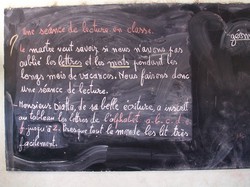 Une séance de lecture en classe.
Le maître veut savoir si nous n'avons pas
oublié les lettres et les mots pendant les
longs mois de vacances. Nous faisons donc
une séance de lecture.
Monsieur Diatta, de sa belle écriture, a inscrit
au tableau les lettres de l'alphabet a.b.c.d.e
jusqu'à z. Presque tout le monde les lit très
facilement.